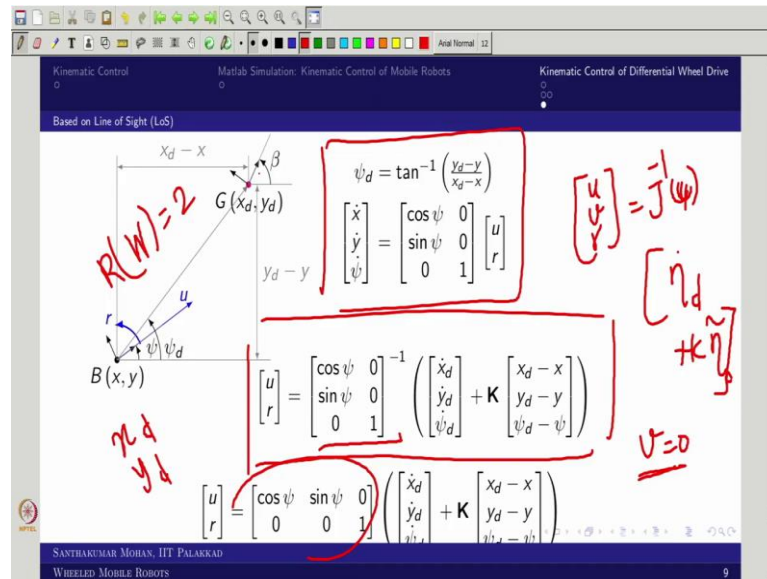 Arial Normal 12
Kinematic Control
Matlab Simulation: Kinematic Control of Mobile Robots
Kinematic Control of Differential Wheel Drive
Based on Line of Sight (LoS)
x_d − x
β
G (x_d, y_d)
R(W)=2
y_d − y
u
r
ψ ψ_d
B (x, y)
x_d
y_d
ψ_d = tan⁻¹ ( (y_d−y) / (x_d−x) )
[ẋ ẏ ψ̇] = [cos ψ 0; sin ψ 0; 0 1] [u r]
[u r] = [cos ψ 0; sin ψ 0; 0 1]⁻¹ ([ẋ_d ẏ_d ψ̇_d] + K [x_d − x; y_d − y; ψ_d − ψ])
[u r] = [cos ψ sin ψ 0; 0 0 1] ([ẋ_d ẏ_d ψ̇_d] + K [x_d − x; y_d − y; ψ_d − ψ])
[u v r] = J⁻¹(ψ)
[η̇_d
+K η̃]
v=0
NPTEL
SANTHAKUMAR MOHAN, IIT PALAKKAD
WHEELED MOBILE ROBOTS
9